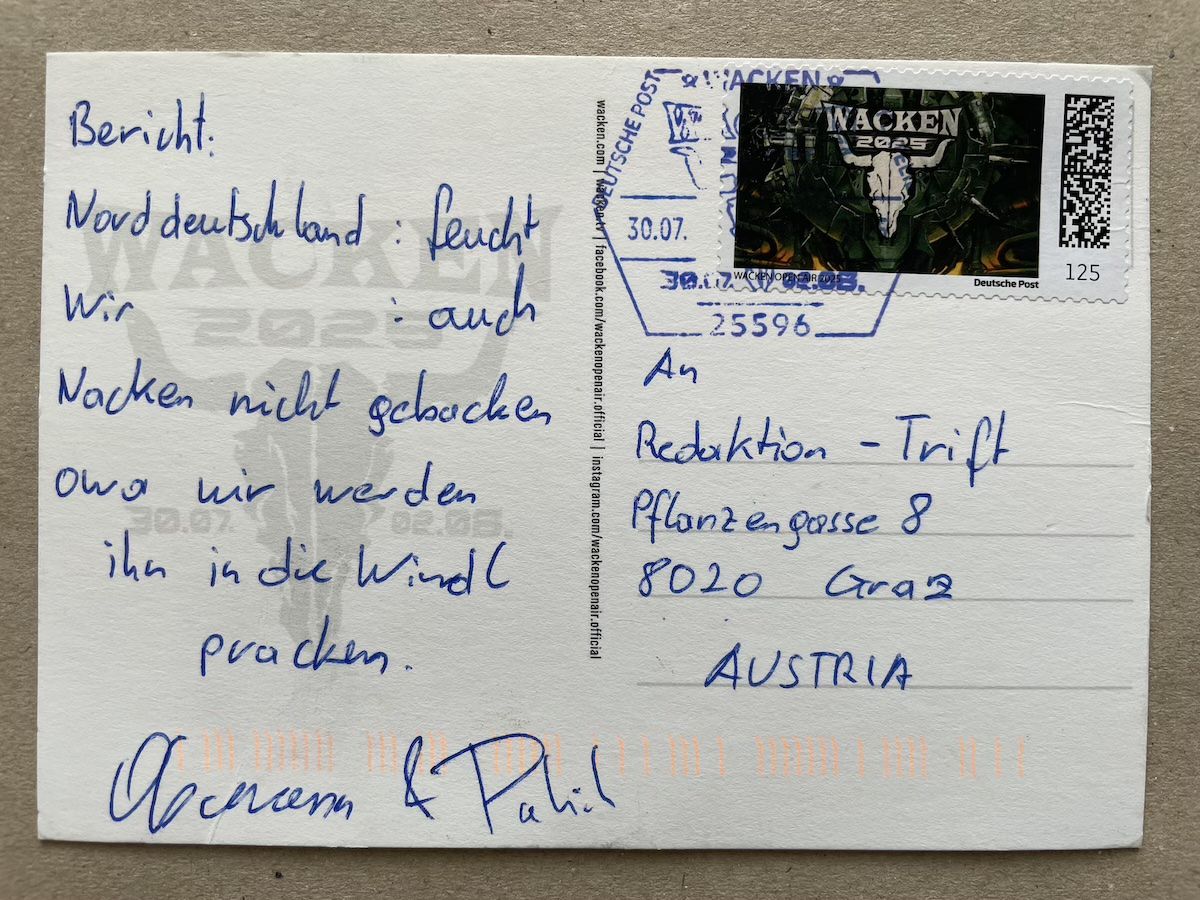 Bericht:
Norddeutschland : feucht
Wir : auch
Nacken nicht gebacken
owa wir werden
ihn in die Windl
pracken.
&
WACKEN
2025
30.07.
02.08.
wacken.com | wacken.tv | facebook.com/wackenopenair.official | instagram.com/wackenopenair.official
WACKEN
DEUTSCHE POST
30.07.
25596
WACKEN
2025
WACKEN OPEN AIR 2025
Deutsche Post
125
An
Redaktion - Trift
Pflanzengasse 8
8020 Graz
AUSTRIA